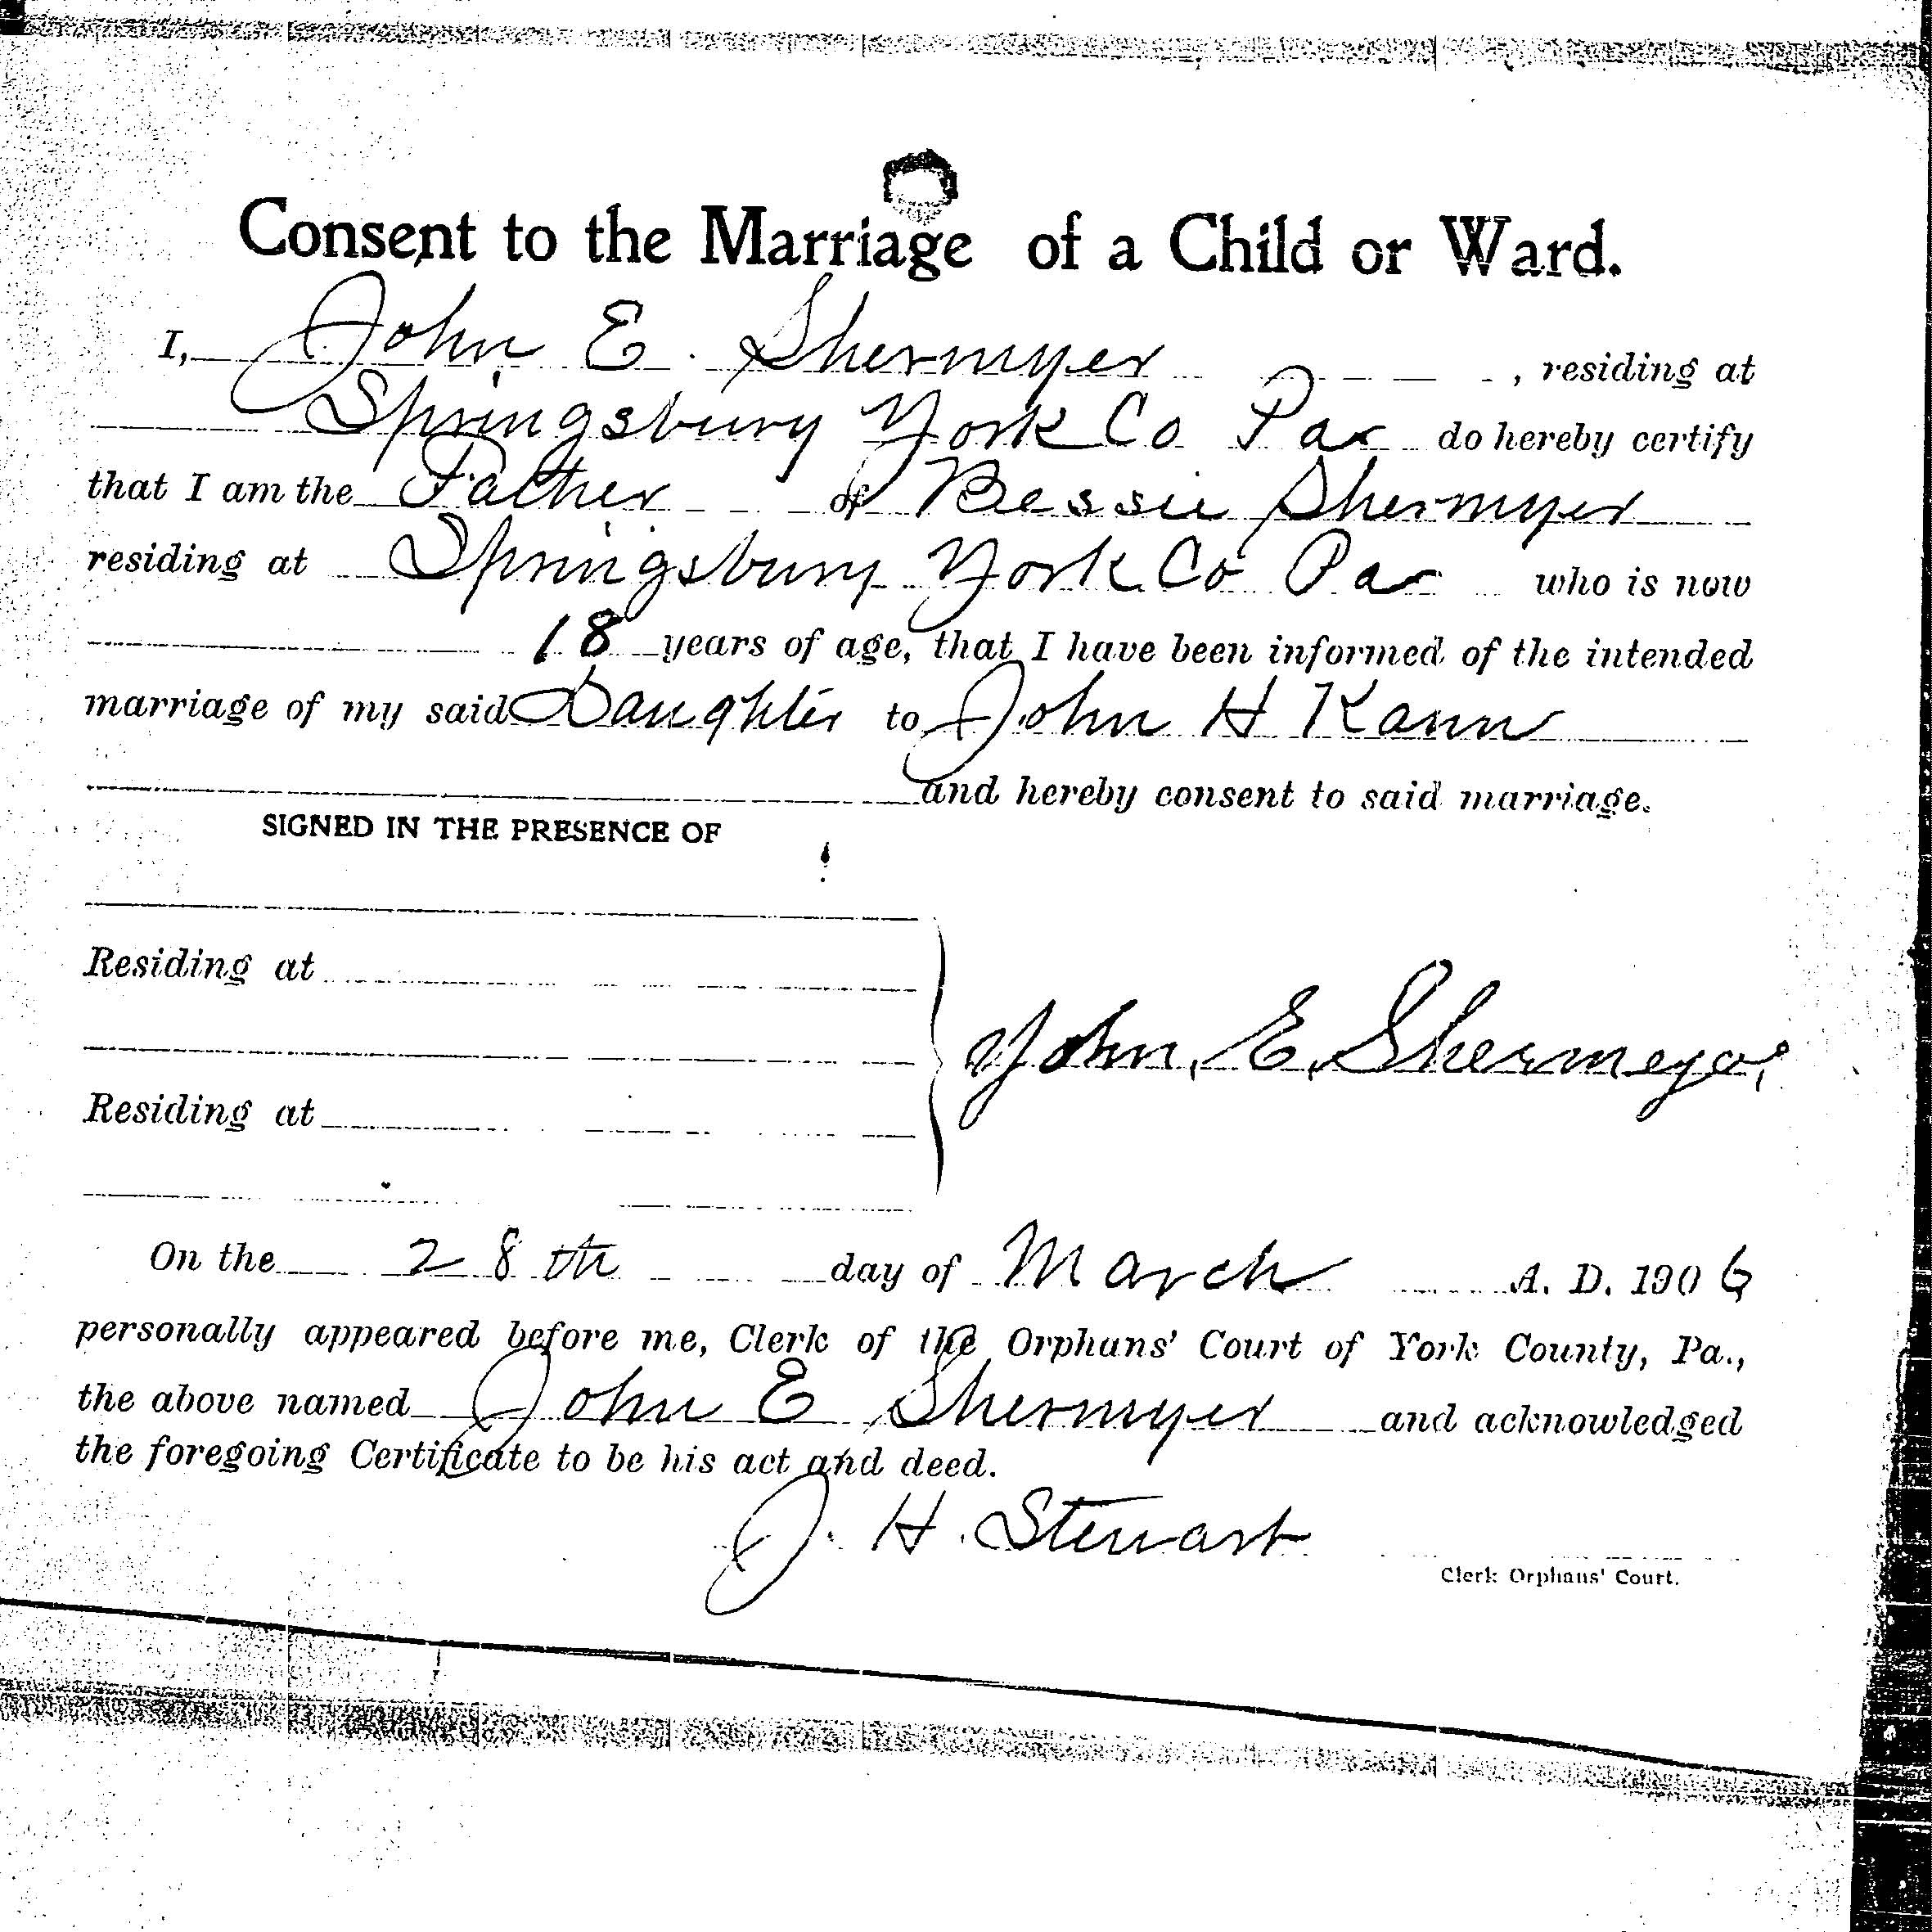 Consent to the Marriage of a Child or Ward.
I, John E. Shermyer, residing at
Springsbury York Co Pa do hereby certify
that I am the Father of Bessie Shermyer
residing at Springsbury York Co Pa who is now
18 years of age, that I have been informed of the intended
marriage of my said Daughter to John H Kann
and hereby consent to said marriage.
SIGNED IN THE PRESENCE OF
Residing at
John, E, Shermeyer
Residing at
On the 28th day of March A. D. 1906
personally appeared before me, Clerk of the Orphans' Court of York County, Pa.,
the above named John E Shermyer and acknowledged
the foregoing Certificate to be his act and deed.
J. H. Stewart
Clerk Orphans' Court.